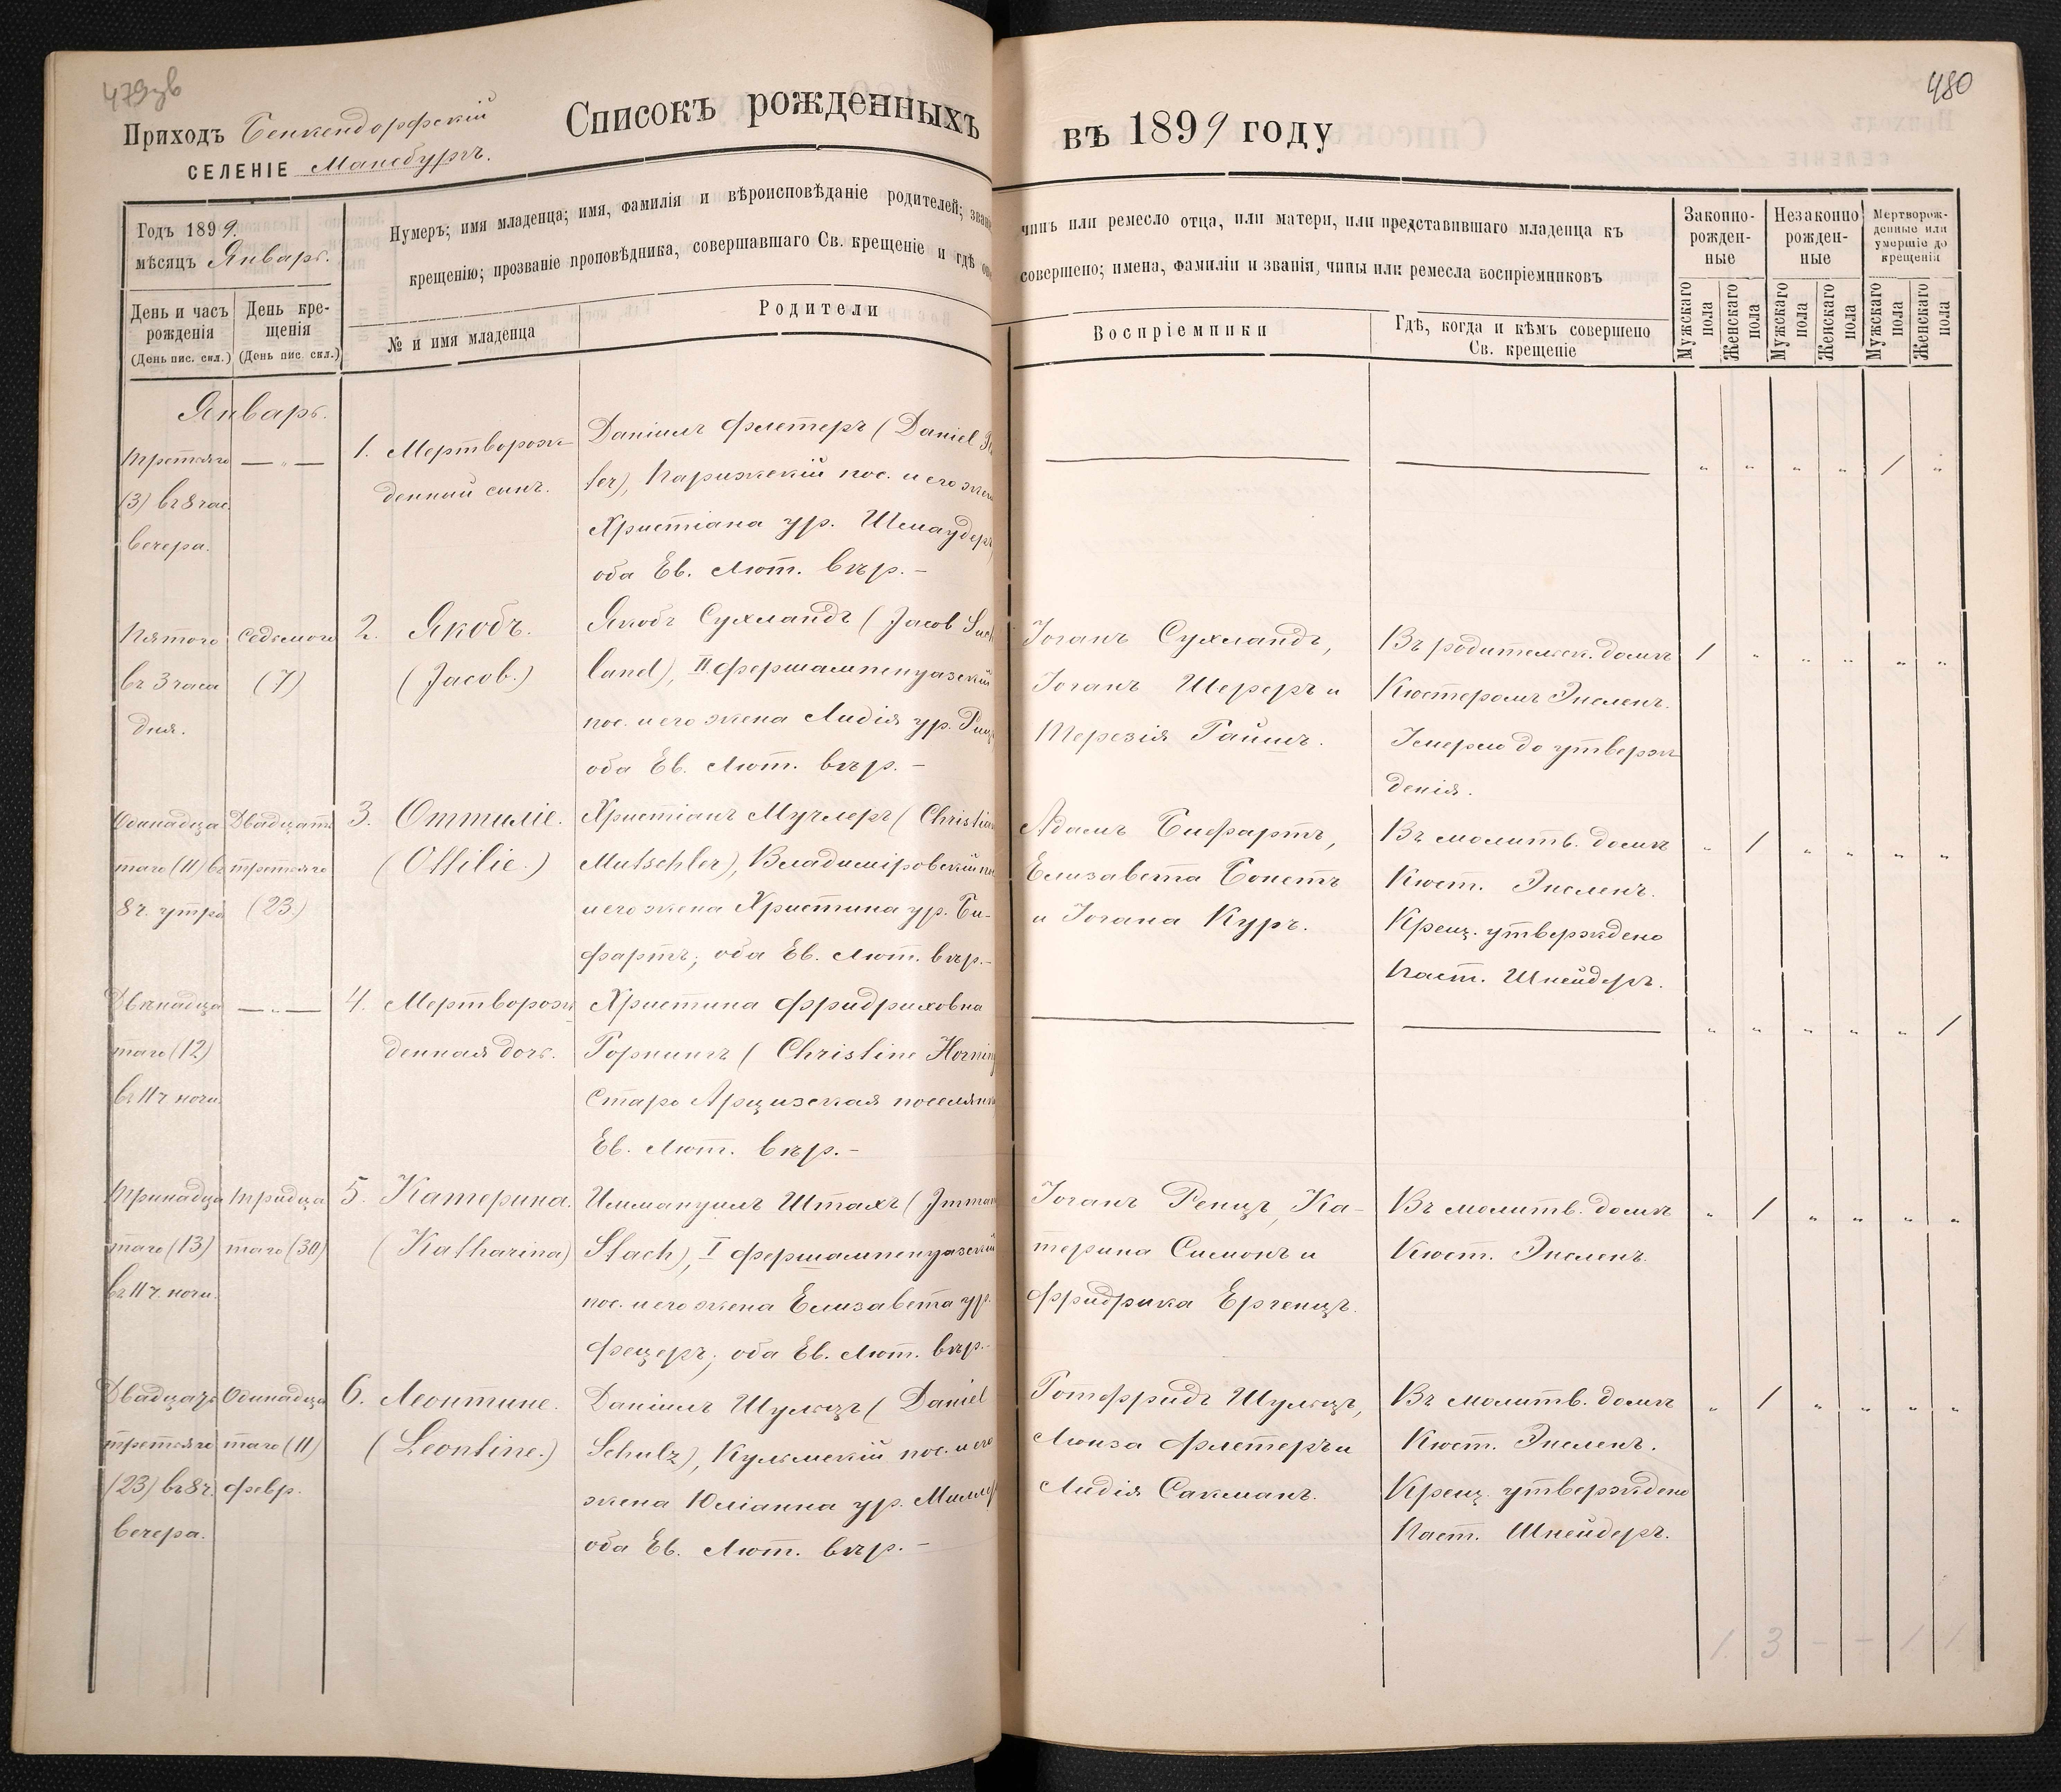 479зв
Приходъ Бенкендорфскій
селеніе Мансбургъ.
Списокъ рожденныхъ
Годъ 1899.
мѣсяцъ Январь.
Нумеръ; имя младенца; имя, фамилія и вѣроисповѣданіе родителей;
крещенію; прозваніе проповѣдника, совершавшаго Св. крещеніе и гдѣ
День и часъ рожденія (День пис. скл.)
День крещенія (День пис. скл.)
№ и имя младенца
Родители
Январь.
третьяго
(3) въ 8 час.
вечера.
— „ —
1. Мертворож-
денный сынъ.
Даніилъ Флетеръ (Daniel
ter), Парижскій пос. и его жена
Христіана ур. Шмаудеръ
оба Ев. Лют. вѣр. –
Пятого
въ 3 часа
дня.
Седьмого
(7)
2. Якобъ.
(Jacob.)
Якобъ Сухландъ (Jacob Such
land), II. фершампенуазскій
пос. и его жена Лидія ур.
оба Ев. Лют. вѣр. –
Одинадца
таго (11) въ
8 ч. утра
Двадцать
третьяго
(23.)
3. Оттиліе.
(Ottilie.)
Христіанъ Мучлеръ (Christian
Mutschler), Владиміровскій
и его жена Христина ур. Би-
фартъ; оба Ев. Лют. вѣр. –
Двѣнадца
таго (12)
въ 11 ч. ночи.
— „ —
4. Мертворож
денная дочь.
Христина Фридриховна
Горнингъ (Christine Horning
Старо Арцизская поселянка
Ев. Лют. вѣр. –
Тринадца
таго (13)
въ 11 ч. ночи.
Тридца
таго (30)
5. Катерина.
(Katharina)
Иммануилъ Штахъ (Imman
Stach), I фершампенуазскій
пос. и его жена Елизавета ур.
Фецеръ; оба Ев. Лют. вѣр. –
Двадцать
третьяго
(23) въ 8 ч.
вечера.
Одинадца
таго (11)
февр.
6. Леонтине.
(Leontine.)
Даніилъ Шульцъ (Daniel
Schulz), Кульмскій пос. и его
жена Юліанна ур. Миллеръ
оба Ев. Лют. вѣр. –
480
въ 1899 году
чинъ или ремесло отца, или матери, или представившаго младенца къ
совершено; имена, фамиліи и званія, чины или ремесла воспріемниковъ
Воспріемники
Гдѣ, когда и кѣмъ совершено
Св. крещеніе
Законно-
рожден-
ные
Незаконно
рожден-
ные
Мертворож-
денные или
умершіе до
крещенія
Мужскаго пола
Женскаго пола
Мужскаго пола
Женскаго пола
Мужскаго пола
Женскаго пола
„ „ „ „ 1 „
Іоганъ Сухландъ,
Іоганъ Шереръ и
Терезія Гаймъ.
Въ родительск. домѣ
Кюстеромъ Энсленъ.
Умерло до утверж
денія.
1 „ „ „ „ „
Адамъ Бифартъ,
Елизавета Бонетъ
и Іогана Куръ.
Въ молитв. домѣ
Кюст. Энсленъ.
Крещ. утверждено
Паст. Шнейдеръ.
„ 1 „ „ „ „
„ „ „ „ „ 1
Іоганъ Ренцъ, Ка-
терина Симонъ и
Фридрика Ергенцъ.
Въ молитв. домѣ
Кюст. Энсленъ.
„ 1 „ „ „ „
Готфридъ Шульцъ,
Люиза Флетеръ и
Лидія Сакманъ.
Въ молитв. домѣ
Кюст. Энсленъ.
Крещ. утверждено
Паст. Шнейдеръ.
„ 1 „ „ „ „
1. 3 – – 1 1